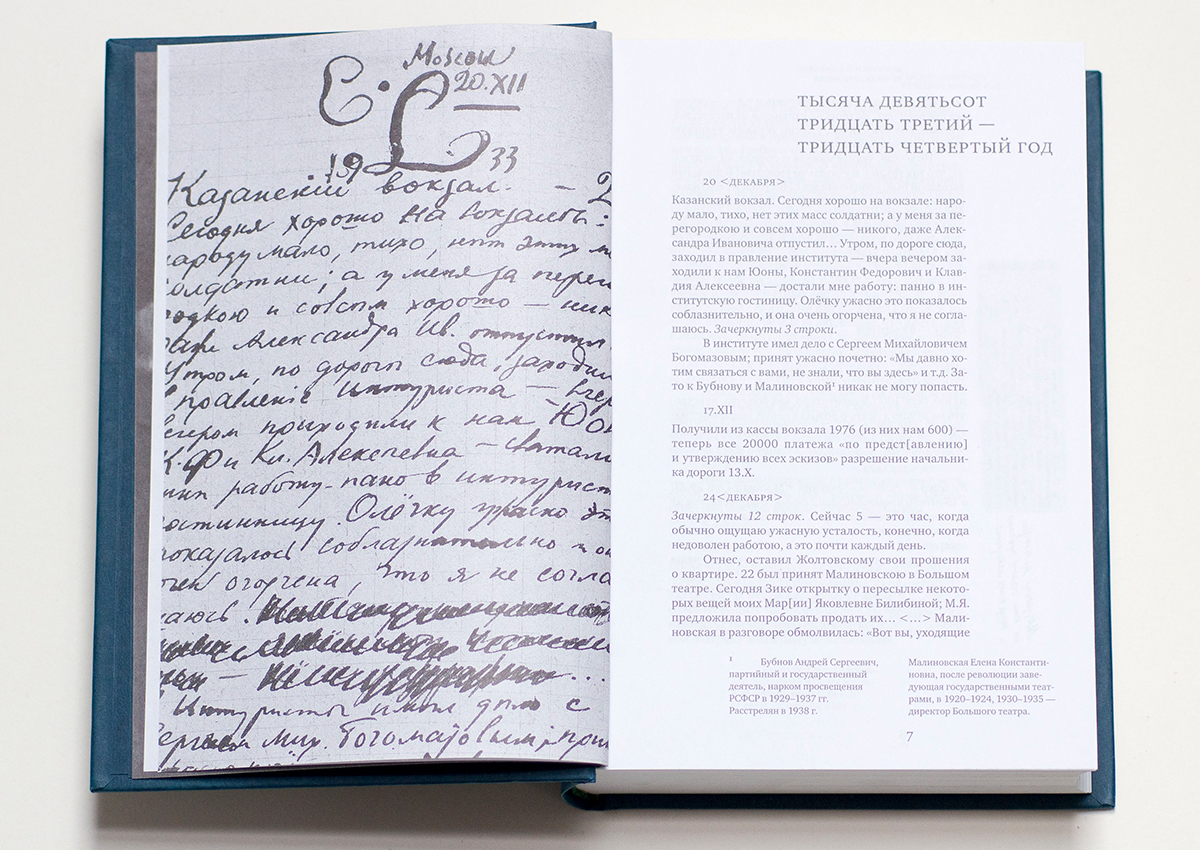 Moscow
Е. Л
20.XII
1933
Казанскій вокзал. —
Сегодня хорошо на вокзалѣ:
народу мало, тихо, нѣт этих
солдатни; а у меня за перег
родкою и совсѣм хорошо — ник
даже Александра Ив. отпустил
Утром, по дорогѣ сюда, заходил
в правленіе Интуриста — вчер
вечером приходили к нам Юон
К.Ф и Кл. Алексѣевна — сватали
мнѣ работу - пано в интурист
гостинницу. Олёчку ужасно эт
показалось соблазнительно и он
очен огорчена, что я не согла
шаюсь.
Интурист имѣл дѣло с
Сергѣем Мих. Богомазовым, при
ТЫСЯЧА ДЕВЯТЬСОТ
ТРИДЦАТЬ ТРЕТИЙ —
ТРИДЦАТЬ ЧЕТВЕРТЫЙ ГОД
20 <ДЕКАБРЯ>
Казанский вокзал. Сегодня хорошо на вокзале: наро-
ду мало, тихо, нет этих масс солдатни; а у меня за пе-
регородкою и совсем хорошо — никого, даже Алек-
сандра Ивановича отпустил… Утром, по дороге сюда,
заходил в правление института — вчера вечером за-
ходили к нам Юоны, Константин Федорович и Клав-
дия Алексеевна — достали мне работу: панно в ин-
ститутскую гостиницу. Олёчку ужасно это показалось
соблазнительно, и она очень огорчена, что я не согла-
шаюсь. Зачеркнуты 3 строки.
В институте имел дело с Сергеем Михайловичем
Богомазовым; принят ужасно почетно: «Мы давно хо-
тим связаться с вами, не знали, что вы здесь» и т.д. За-
то к Бубнову и Малиновской¹ никак не могу попасть.
17.XII
Получили из кассы вокзала 1976 (из них нам 600) —
теперь все 20000 платежа «по предст[авлению]
и утверждению всех эскизов» разрешение начальни-
ка дороги 13.X.
24<ДЕКАБРЯ>
Зачеркнуты 12 строк. Сейчас 5 — это час, когда
обычно ощущаю ужасную усталость, конечно, когда
недоволен работою, а это почти каждый день.
Отнес, оставил Жолтовскому свои прошения
о квартире. 22 был принят Малиновскою в Большом
театре. Сегодня Зике открытку о пересылке некото-
рых вещей моих Мар[ии] Яковлевне Билибиной; М.Я.
предложила попробовать продать их… <…> Мали-
новская в разговоре обмолвилась: «Вот вы, уходящие
¹ Бубнов Андрей Сергеевич,
партийный и государственный
деятель, нарком просвещения
РСФСР в 1929–1937 гг.
Расстрелян в 1938 г.
Малиновская Елена Константи-
новна, после революции заве-
дующая государственными теат-
рами, в 1920–1924, 1930–1935 —
директор Большого театра.
7